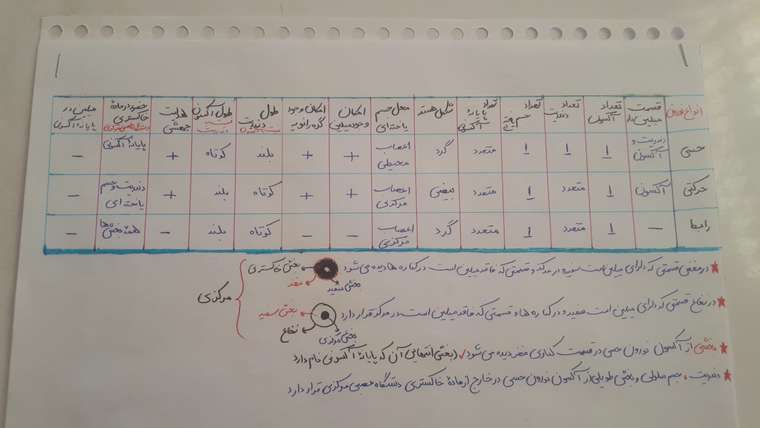 انواع نورون | قسمت میلین دار | تعداد آکسون | تعداد دندریت | تعداد جسم یاخته ای | تعداد پایانه آکسونی | شکل هسته | محل جسم یاخته ای | امکان وجود میلین | امکان وجود گره رانویه | طول دندریت | طول آکسون | هدایت جهشی | حضور در مادهٔ خاکستری | میلین در پایانه آکسونی
حسی | دندریت و آکسون | 1 | 1 | 1 | متعدد | گرد | اعصاب محیطی | + | + | بلند | کوتاه | + | پایانهٔ آکسونی | −
حرکتی | آکسون | 1 | متعدد | 1 | متعدد | بیضی | اعصاب مرکزی | + | + | کوتاه | بلند | + | دندریت و جسم یاخته ای | −
رابط | − | 1 | متعدد | 1 | متعدد | گرد | اعصاب مرکزی | − | − | کوتاه | بلند | − | همهٔ بخش ها | −
★ در مغز قسمتی که دارای میلین است سفید و در مرکز و قسمتی که فاقد میلین است در کناره ها دیده می شود
بخش خاکستری
مغز
بخش سفید
مرکزی
★ در نخاع قسمتی که دارای میلین است سفید و در کناره ها و قسمتی که فاقد میلین است در مرکز قرار دارد
بخش سفید
نخاع
★ بخشی از آکسون نورون حسی در قسمت خاکستری مغز دیده می شود (بخش انتهایی آن که پایانهٔ آکسونی نام دارد
★ دندریت، جسم سلولی و بخش طویلی از آکسون نورون حسی در خارج از مادهٔ خاکستری دستگاه عصبی مرکزی قرار دارد